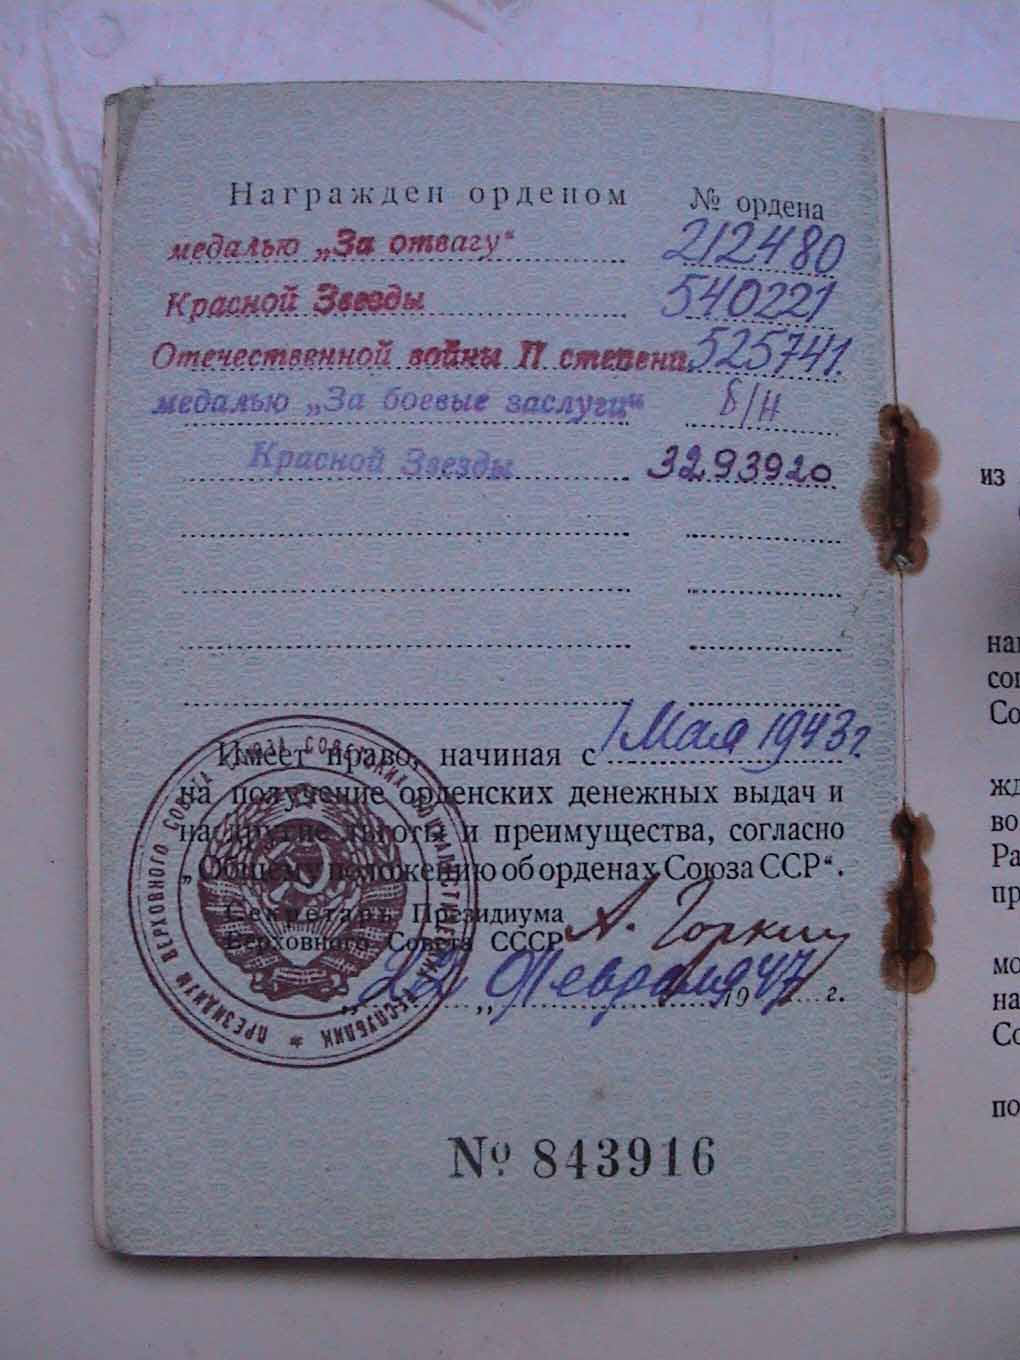 Награжден орденом № ордена
медалью „За отвагу“ 212480
Красной Звезды 540221
Отечественной войны II степени 525741.
медалью „За боевые заслуги“ б/н
Красной Звезды 3293920
Имеет право, начиная с 1 Мая 1943 г
на получение орденских денежных выдач и
на другие льготы и преимущества, согласно
„Общему положению об орденах Союза ССР“.
Секретарь Президиума
Верховного Совета СССР А. Горкин
„22„ Февраля 1947 г.
ПРЕЗИДИУМ ВЕРХОВНОГО СОВЕТА СОЮЗА СОВЕТСКИХ СОЦИАЛИСТИЧЕСКИХ РЕСПУБЛИК *
№ 843916
из
на
Со
во
Ра
пр
мо
на
Со
по